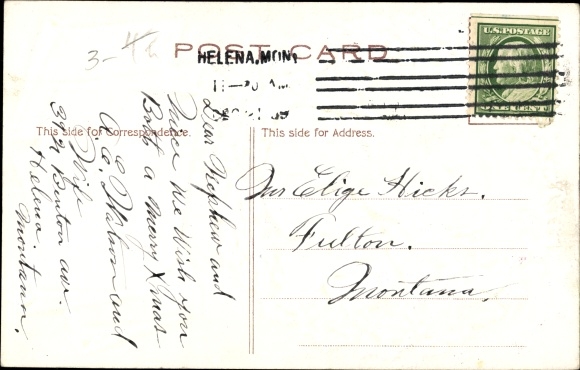 3-
POST CARD
HELENA, MONT
11-30 AM
DEC 21 09
U.S. POSTAGE
ONE CENT
This side for Correspondence.
This side for Address.
Dear Nephew and
Niece We Wish you
Both a Merry Xmas
A. C. Watson and
Wife
Benton av.
Helena.
Montana.
Mr Elige Hicks.
Fulton.
Montana.